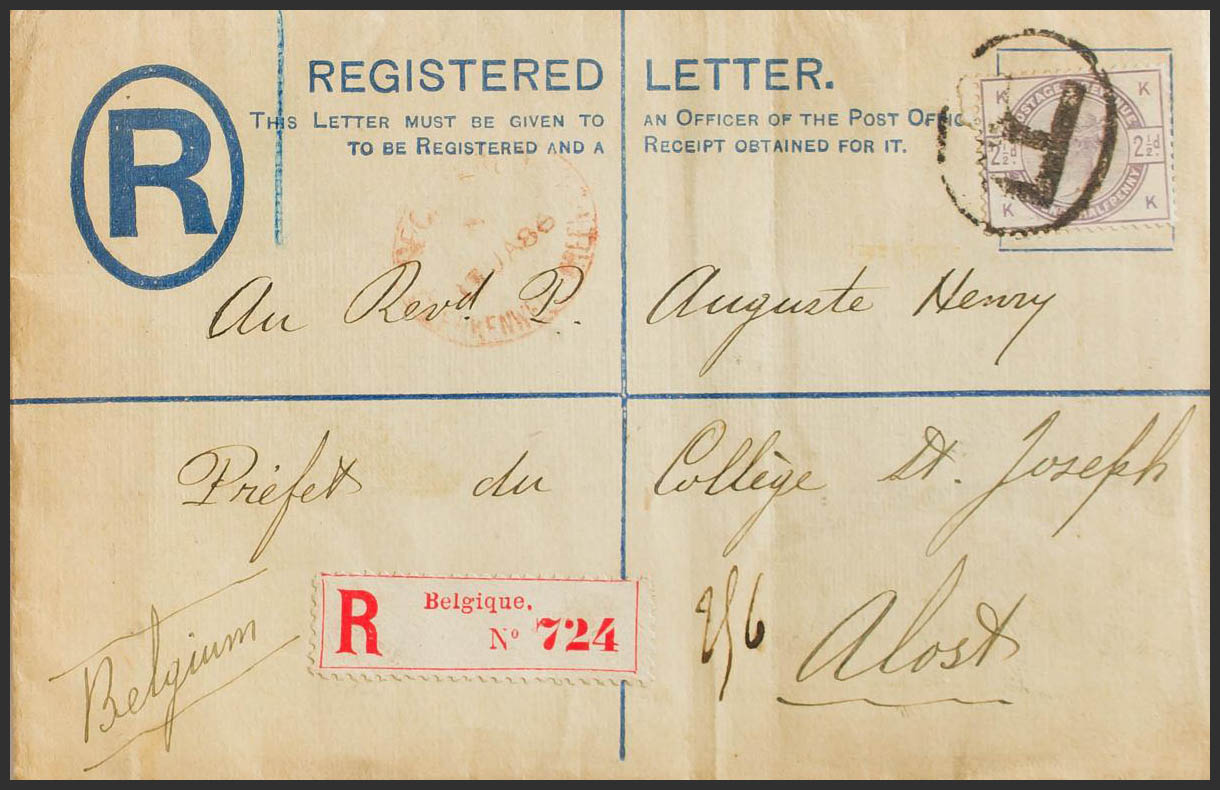 R
REGISTERED LETTER.
THIS LETTER MUST BE GIVEN TO AN OFFICER OF THE POST OFFIC
TO BE REGISTERED AND A RECEIPT OBTAINED FOR IT.
K K
POSTAGE
2½d. 2½d.
HALFPENNY
K K
F
JA 86
Au Revd P. Auguste Henry
Préfet du Collège St. Joseph
Alost
Belgium
R Belgique.
Nº 724